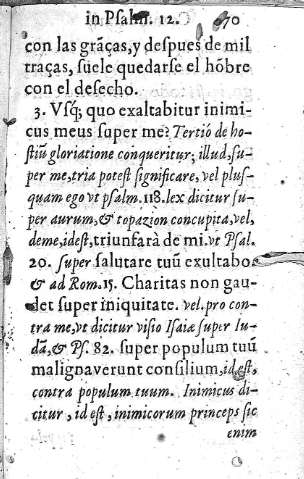 in Psalm. 12. 70
con las grãças, y despues de mil
traças, suele quedarse el hõbre
con el desecho.
3. Vsq; quo exaltabitur inimi
cus meus super me? Tertiò de ho-
stiũ gloriatione conqueritur; illud, su-
per me, tria potest significare, vel plus-
quam ego vt psalm. 118. lex dicitur su-
per aurum, & topazion concupita, vel,
deme, idest, triunfarà de mi. vt Psal.
20. super salutare tuũ exultabo
& ad Rom. 15. Charitas non gau-
det super iniquitate. vel. pro con-
tra me, vt dicitur visio Isaiæ super Iu-
dã, & Ps. 82. super populum tuũ
malignaverunt consilium, id est,
contra populum tuum. Inimicus di-
citur, id est, inimicorum princeps sic
enim